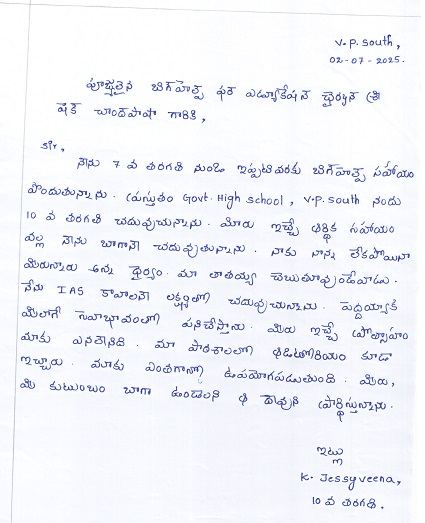 V.P. South,
02-07-2025.
పూజ్యులైన బిగ్‌హెల్ప్ ఫర్ ఎడ్యుకేషన్ చైర్మన్ శ్రీ
షేక్ చాంద్‌పాషా గారికి,
Sir,
నేను 7 వ తరగతి నుండి ఇప్పటివరకు బిగ్‌హెల్ప్ సహాయం
పొందుతున్నాను. ప్రస్తుతం Govt. High school, V.P. South నందు
10 వ తరగతి చదువుచున్నాను. మీరు ఇచ్చే ఆర్థిక సహాయం
వల్ల నేను బాగానే చదువుతున్నాను. నాకు నాన్న లేకపోయినా
మీరున్నారు అన్న ధైర్యం. మా తాతయ్య చెబుతూవుండేవాడు.
నేను IAS కావాలనే లక్ష్యంతో చదువుచున్నాను. పెద్దయ్యాక
మీలాగే సేవాభావంతో పనిచేస్తాను. మీరు ఇచ్చే ప్రోత్సాహం
మాకు ఎనలేనిది. మా పాఠశాలలో ఆడిటోరియం కూడా
ఇచ్చారు. మాకు ఎంతగానో ఉపయోగపడుతుంది. మీరు,
మీ కుటుంబం బాగా ఉండాలని ఆ దేవుని ప్రార్థిస్తున్నాను.
ఇట్లు
K. Jessyveena,
10 వ తరగతి.